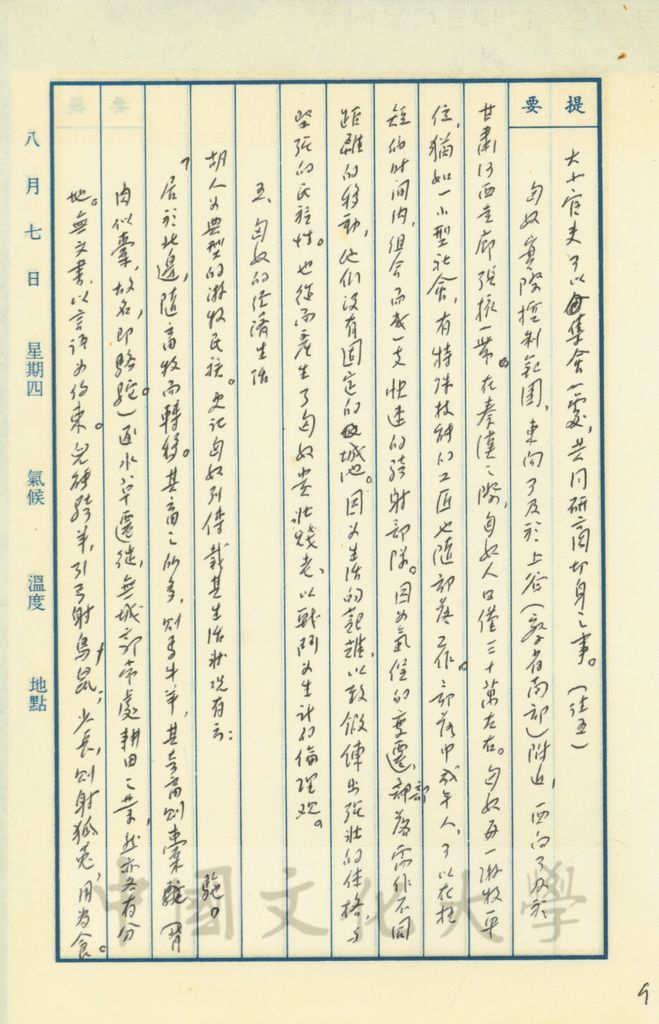 提要
大小官吏可以集會一處,共同研商切身之事。(註五)
匈奴實際控制範圍,東向可及於上谷(察省南部)附近,西向可及於
甘肅河西走廊張掖一帶。在秦漢之際,匈奴人口僅三十萬左右。匈奴每一游牧單
位,猶如一小型社會,有特殊技能的工匠也隨部落工作。部落中成年人,可以在極
短的時間內,組合而成一支快速的騎射部隊。因為氣候的變遷,部落需作不同
距離的移動,他們沒有固定的城池。因為生活的艱難,以致鍛鍊出強壯的体格,与
堅強的民族性。也從而產生了匈奴貴壯賤老、以戰鬥為生計的倫理观。
五、匈奴的经濟生活
胡人为典型的游牧民族。史记匈奴列傳載其生活狀况有云:
「居於北邊,隨畜牧而轉移。其畜之所多,則馬牛羊,其奇畜則橐駞。(胃
肉似橐,故名,即駱駝)逐水草遷徙,無城郭常處耕田之業,然亦各有分
地。無文書,以言語为约束。兒能騎羊,引弓射鳥鼠;少長,則射狐兔,用为食。
八月七日 星期四 氣候 溫度 地點
中國文化大學
9